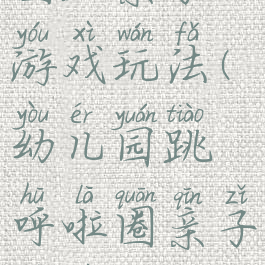 yóu xì wán fǎ
游戏玩法(
yòu ér yuán tiào
幼儿园跳
hū lā quān qīn zǐ
呼啦圈亲子